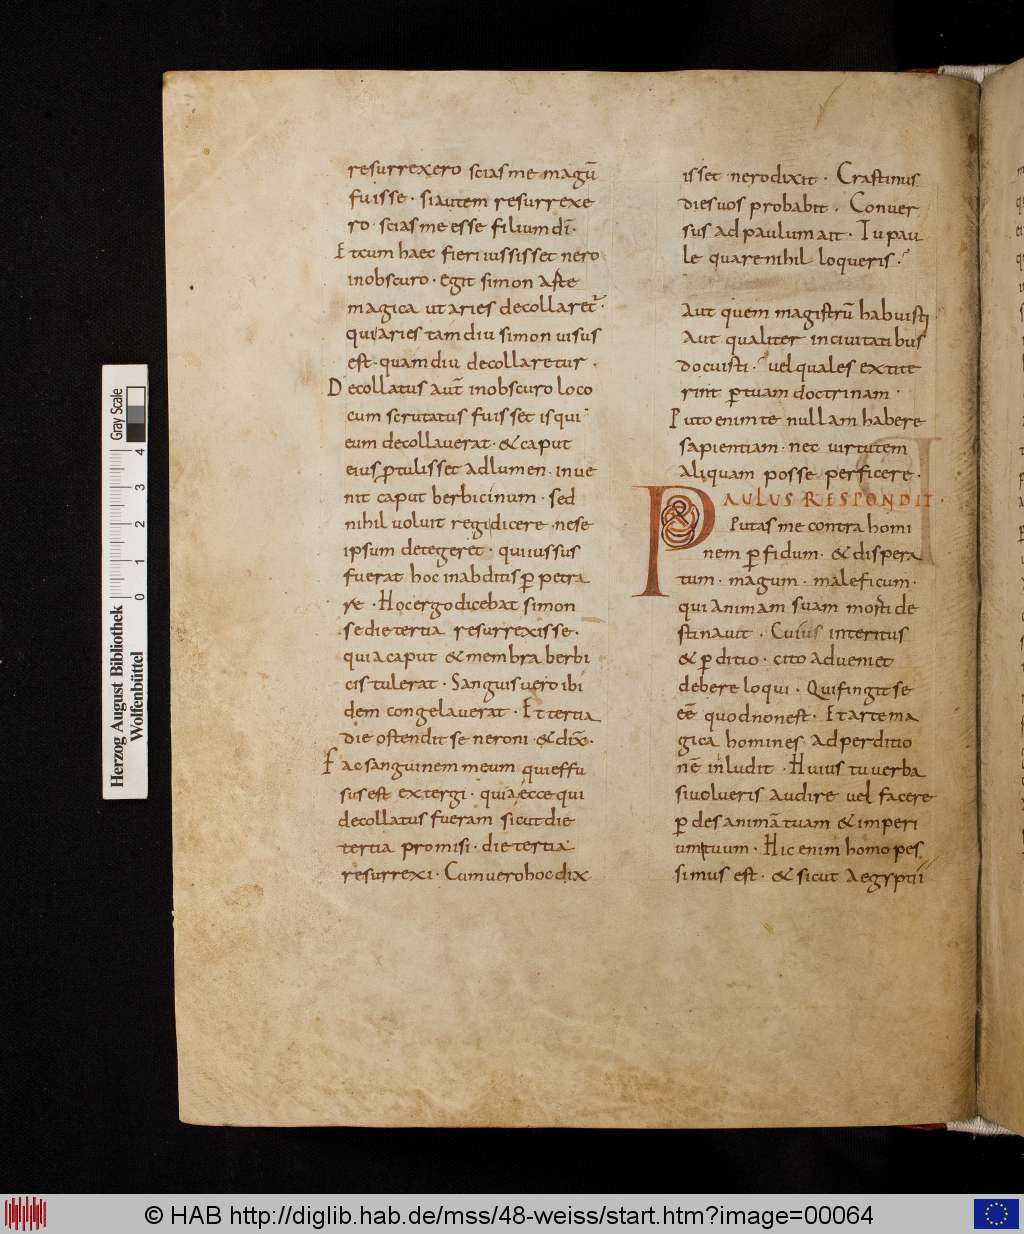 resurrexero scias me magū
fuisse · si autem resurrexe
ro · scias me esse filium dī ·
Et cum haec fieri iussisset nero
in obscuro · egit simon aste
magica ut aries decollaret ·
qui aries tam diu simon uisus
est · quam diu decollaretur ·
Decollatus aut̄ in obscuro loco
cum scrutatus fuisset is qui
eum decollauerat · & caput
eius ꝑtulisset ad lumen · inue
nit caput berbicinum · sed
nihil uoluit regi dicere · ne se
ipsum detegeret · qui iussus
fuerat hoc in abditis ꝑpetra
re · Hoc ergo dicebat simon
se die tertia resurrexisse ·
quia caput & membra berbi
cis tulerat · Sanguis uero ibi
dem congelauerat · Et tertia
die ostendit se neroni · & dix̄ ·
Fac sanguinem meum qui effu
sus est extergi · quia ecce qui
decollatus fueram sicut die
tertia promisi · die tertia
resurrexi · Cum uero hoc dix
isset nero dixit · Crastinus
dies uos probabit · Conuer
sus ad paulum ait · Tu pau
le quare nihil loqueris ·
Aut quem magistrū habuisti
Aut qualiter in ciuitatibus
docuisti · uel quales extite
rint ꝑ tuam doctrinam ·
Puto enim te nullam habere
sapientiam · nec uirtutem
aliquam posse perficere ·
PAULUS RESPONDIT ·
Putas me contra homi
nem ꝑfidum · & despera
tum · magum · maleficum ·
qui animam suam morti de
stinauit · Cuius interitus
& ꝑditio · cito adueniet
debere loqui · Qui fingit se
eē quod non est · Et arte ma
gica homines · ad perditio
nē inludit · Huius tu uerba
si uolueris audire uel facere
ꝑdes animā tuam & imperi
um tuum · Hic enim homo pes
simus est · & sicut aegyptii
Gray Scale
0 1 2 3 4
Herzog August Bibliothek
Wolfenbüttel
© HAB http://diglib.hab.de/mss/48-weiss/start.htm?image=00064